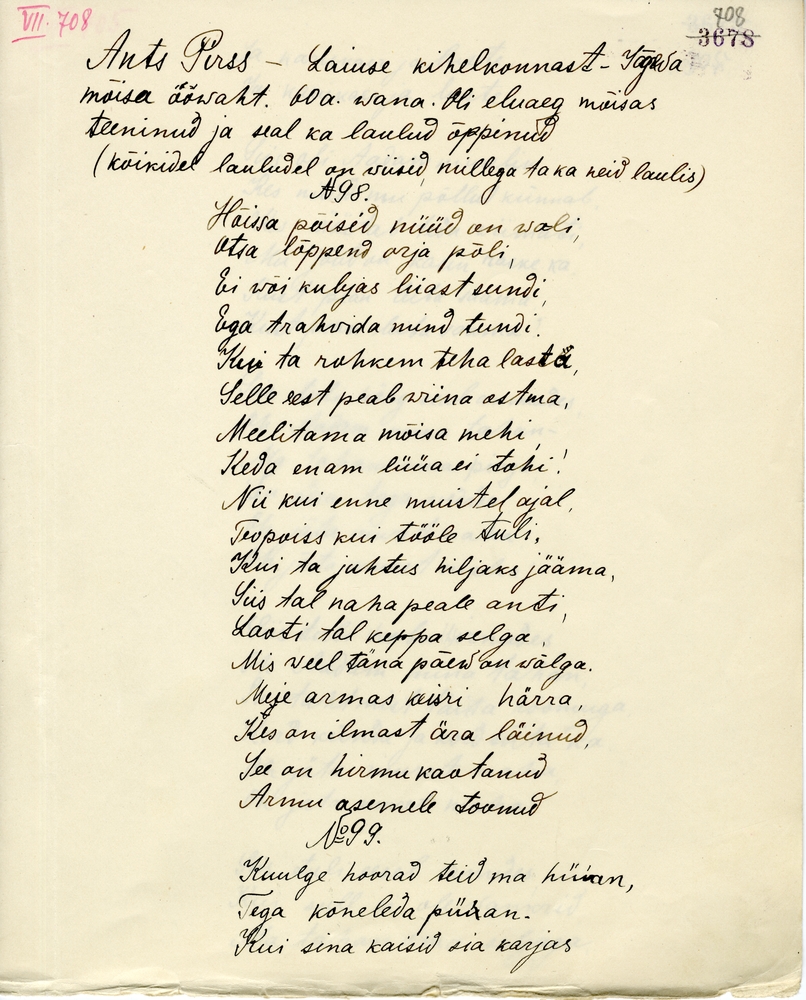 VII. 708
708
3678
Ants Pirss – Laiuse kihelkonnast – Jõgeva
mõisa ööwaht. 60 a. wana. Oli eluaeg mõisas
teeninud ja seal ka laulud õppinud
(kõikidel lauludel on wiisid, millega ta ka neid laulis)
№ 98.
Hõissa põisid nüüd on woli,
Otsa lõppend orja põli,
Ei wõi kubjas liiast sundi,
Ega trahvida mind tundi.
Kui ta rohkem teha lastä,
Selle eest peab wiina ostma,
Meelitama mõisa mehi,
Keda enam lüüa ei tohi!
Nii kui enne muistel ajal,
Teopoiss kui tööle tuli,
Kui ta juhtus hiljaks jääma,
Siis tal naha peale anti,
Laoti tal keppa selga,
Mis veel täna päew on wõlga.
Meje armas keisri härra,
Kes on ilmast ära läinud,
See on hirmu kaotanud
Armu asemele toonud
№ 99.
Kuulge hoorad teid ma hüian,
Tega kõneleda püian.
Kui sina kaisid sia karjas